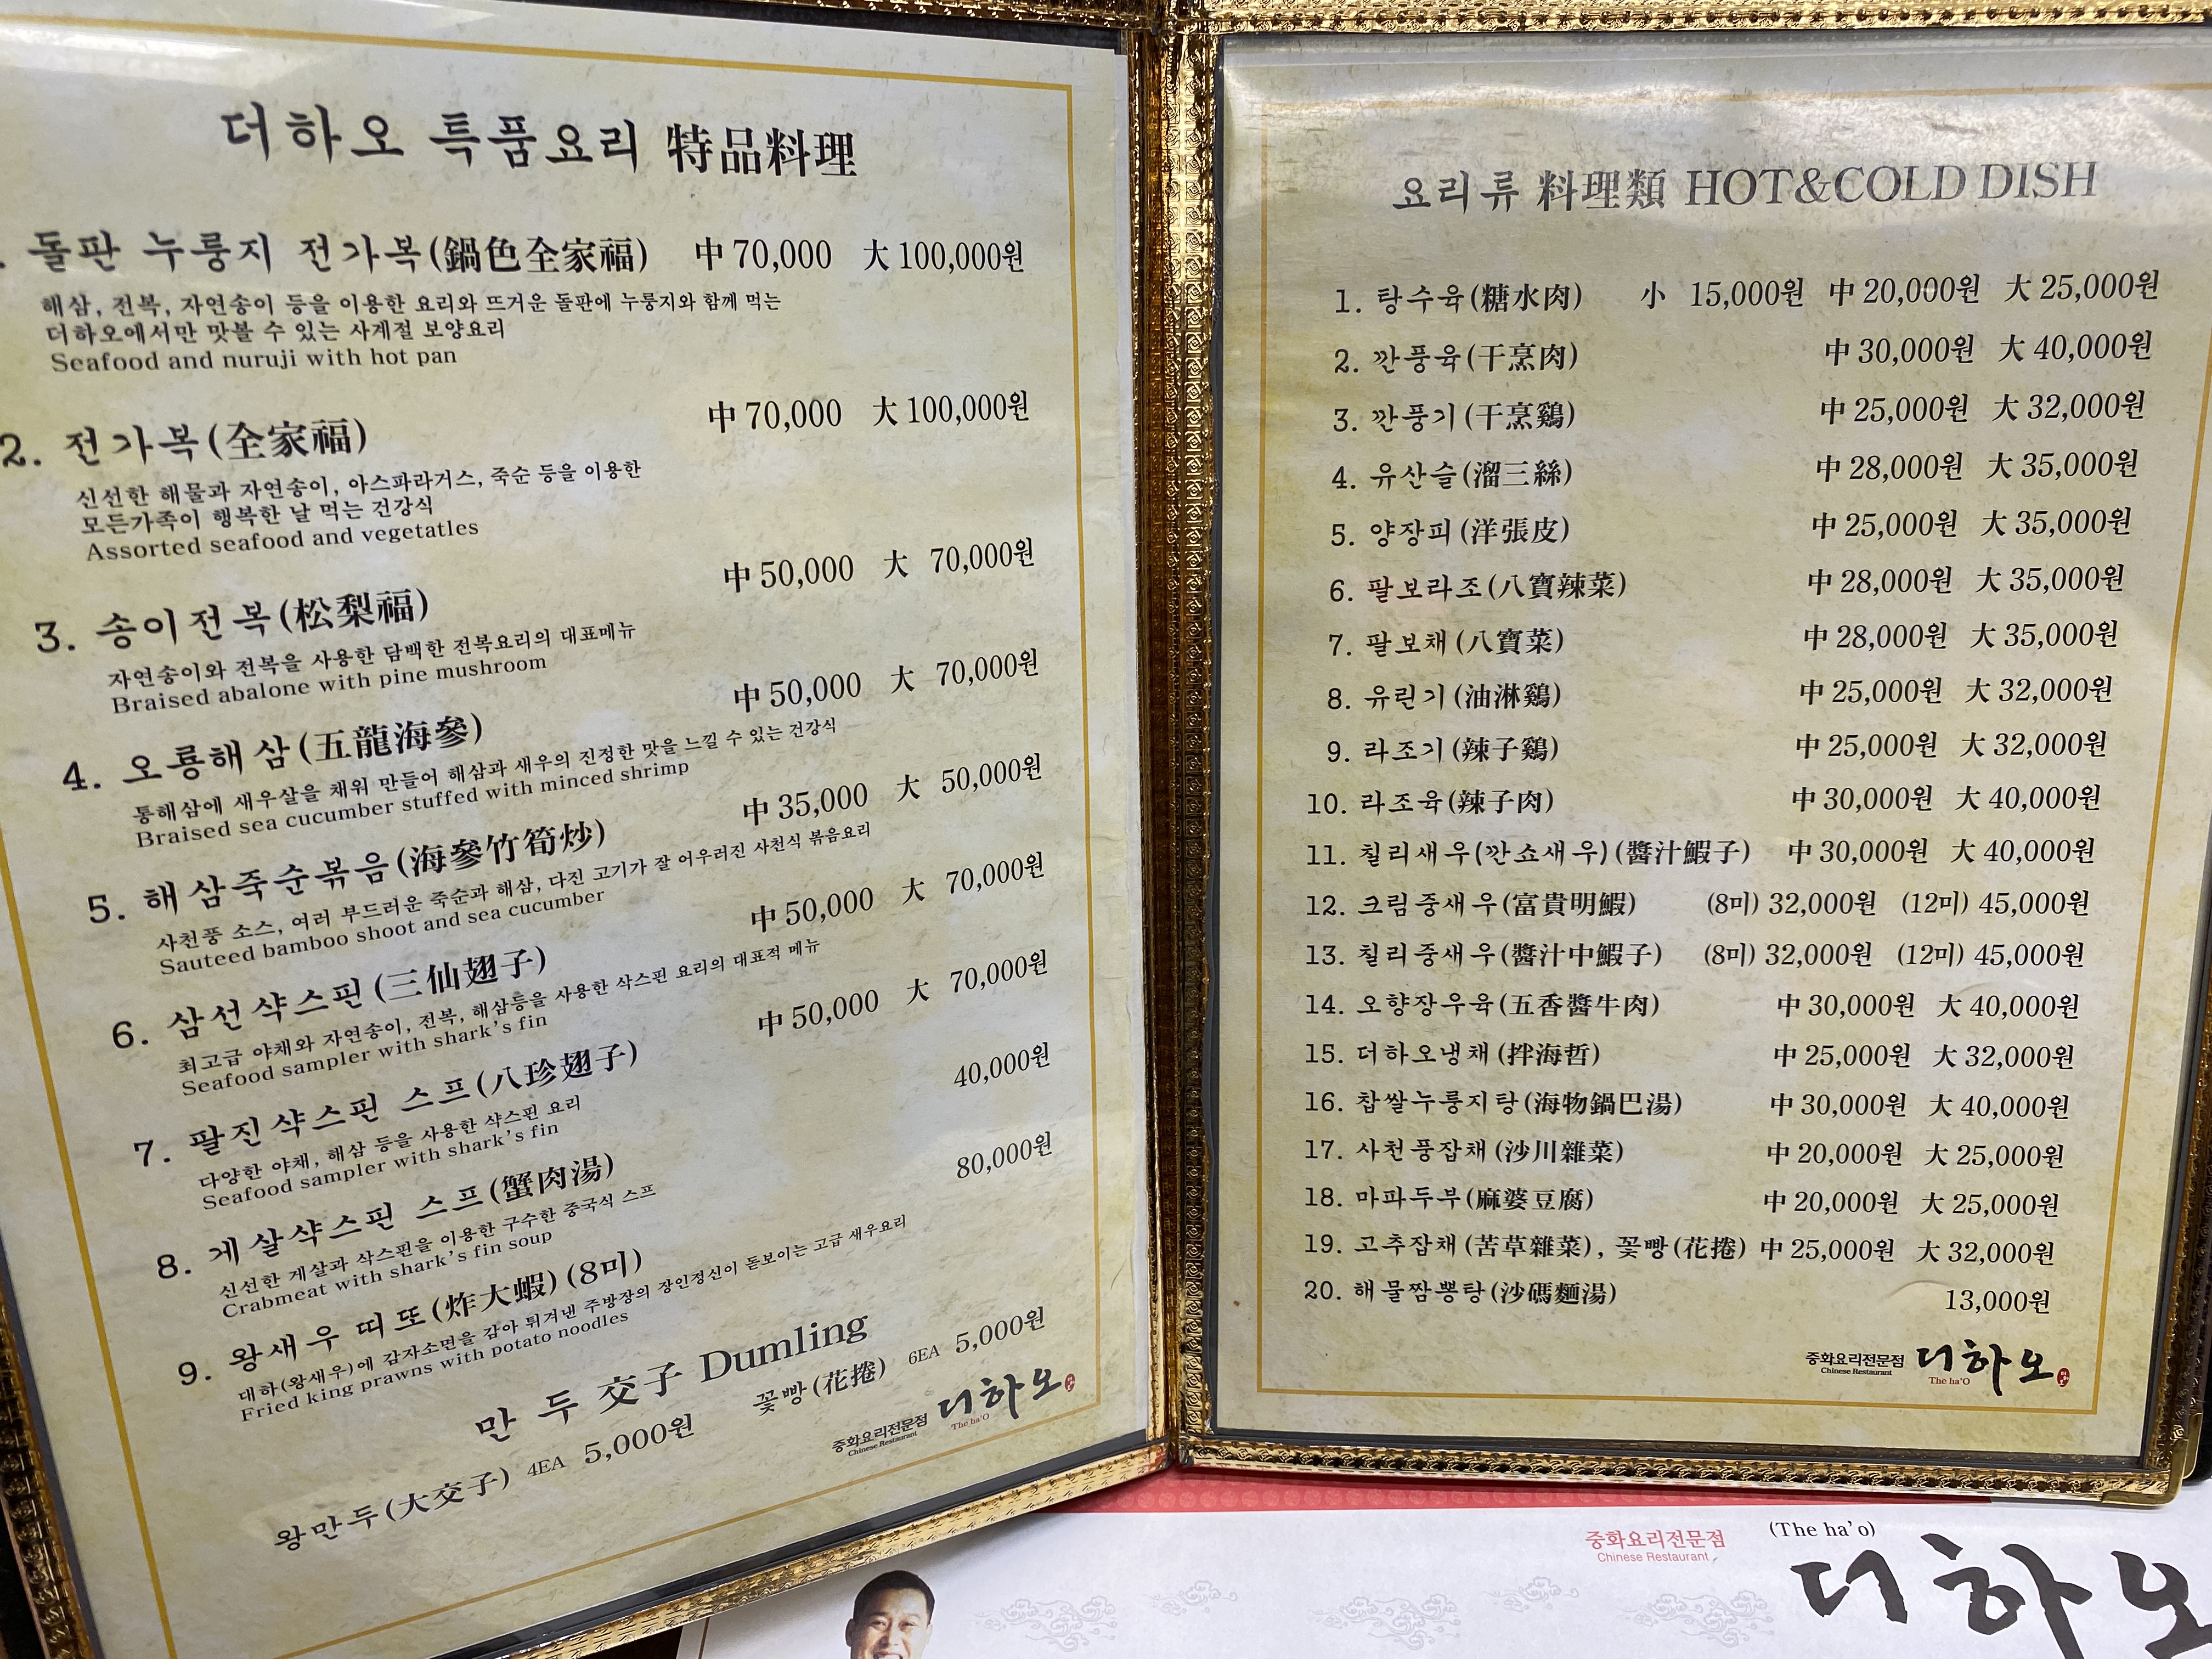 더하오 특품요리 特品料理
돌판 누룽지 전가복(鍋色全家福) 中 70,000 大 100,000원
해삼, 전복, 자연송이 등을 이용한 요리와 뜨거운 돌판에 누룽지와 함께 먹는
더하오에서만 맛볼 수 있는 사계절 보양요리
Seafood and nuruji with hot pan
2. 전가복(全家福) 中 70,000 大 100,000원
신선한 해물과 자연송이, 아스파라거스, 죽순 등을 이용한
모든가족이 행복한 날 먹는 건강식
Assorted seafood and vegetatles
3. 송이전복(松梨福) 中 50,000 大 70,000원
자연송이와 전복을 사용한 담백한 전복요리의 대표메뉴
Braised abalone with pine mushroom
4. 오룡해삼(五龍海參) 中 50,000 大 70,000원
통해삼에 새우살을 채워 만들어 해삼과 새우의 진정한 맛을 느낄 수 있는 건강식
Braised sea cucumber stuffed with minced shrimp
5. 해삼죽순볶음(海參竹筍炒) 中 35,000 大 50,000원
사천풍 소스, 여러 부드러운 죽순과 해삼, 다진 고기가 잘 어우러진 사천식 볶음요리
Sauteed bamboo shoot and sea cucumber
6. 삼선샥스핀(三仙翅子) 中 50,000 大 70,000원
최고급 야채와 자연송이, 전복, 해삼등을 사용한 삭스핀 요리의 대표적 메뉴
Seafood sampler with shark's fin
7. 팔진샥스핀 스프(八珍翅子) 中 50,000 大 70,000원
다양한 야채, 해삼 등을 사용한 샥스핀 요리
Seafood sampler with shark's fin
8. 게살샥스핀 스프(蟹肉湯) 40,000원
신선한 게살과 삭스핀을 이용한 구수한 중국식 스프
Crabmeat with shark's fin soup
9. 왕새우 띠또(炸大蝦)(8미) 80,000원
대하(왕새우)에 감자소면을 감아 튀겨낸 주방장의 장인정신이 돋보이는 고급 새우요리
Fried king prawns with potato noodles
만 두 交子 Dumling
왕만두(大交子) 4EA 5,000원 꽃빵(花捲) 6EA 5,000원
중화요리전문점 더하오
Chinese Restaurant The ha'O
요리류 料理類 HOT&COLD DISH
1. 탕수육(糖水肉) 小 15,000원 中 20,000원 大 25,000원
2. 깐풍육(干烹肉) 中 30,000원 大 40,000원
3. 깐풍기(干烹鷄) 中 25,000원 大 32,000원
4. 유산슬(溜三絲) 中 28,000원 大 35,000원
5. 양장피(洋張皮) 中 25,000원 大 35,000원
6. 팔보라조(八寶辣菜) 中 28,000원 大 35,000원
7. 팔보채(八寶菜) 中 28,000원 大 35,000원
8. 유린기(油淋鷄) 中 25,000원 大 32,000원
9. 라조기(辣子鷄) 中 25,000원 大 32,000원
10. 라조육(辣子肉) 中 30,000원 大 40,000원
11. 칠리새우(깐쇼새우)(醬汁鰕子) 中 30,000원 大 40,000원
12. 크림중새우(富貴明鰕) (8미) 32,000원 (12미) 45,000원
13. 칠리중새우(醬汁中鰕子) (8미) 32,000원 (12미) 45,000원
14. 오향장우육(五香醬牛肉) 中 30,000원 大 40,000원
15. 더하오냉채(拌海哲) 中 25,000원 大 32,000원
16. 찹쌀누룽지탕(海物鍋巴湯) 中 30,000원 大 40,000원
17. 사천풍잡채(沙川雜菜) 中 20,000원 大 25,000원
18. 마파두부(麻婆豆腐) 中 20,000원 大 25,000원
19. 고추잡채(苦草雜菜), 꽃빵(花捲) 中 25,000원 大 32,000원
20. 해물짬뽕탕(沙碼麵湯) 13,000원
중화요리전문점 더하오
Chinese Restaurant The ha'O
중화요리전문점 (The ha'o)
Chinese Restaurant
더하오